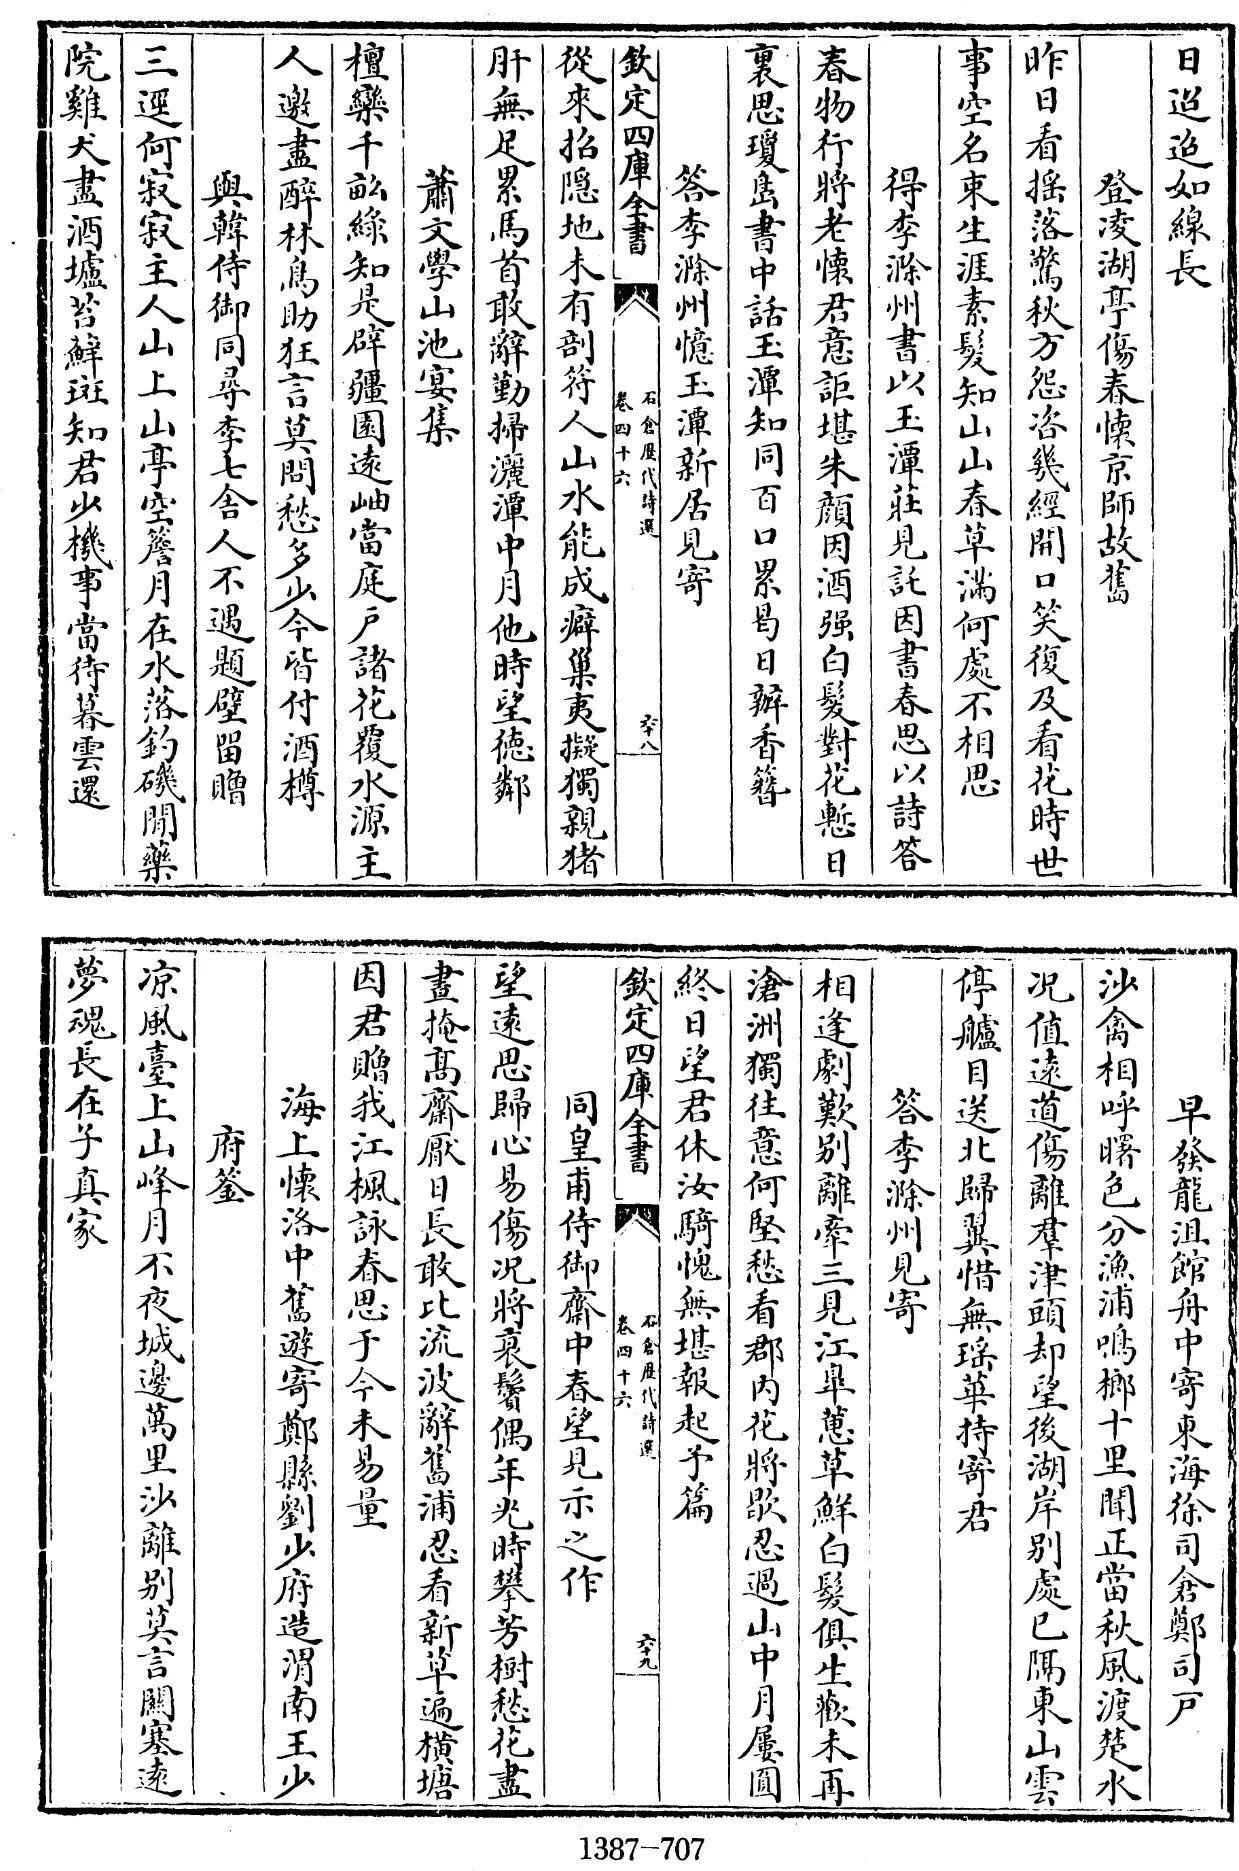 日迢迢如線長
登凌湖亭傷春懷京師故舊
昨日看揺落驚秋方怨咨幾經開口笑復及看花時世
事空名束生涯素髮知山山春草滿何處不相思
得李滁州書以玉潭莊見託因書春思以詩答
春物行將老懷君意詎堪朱顔因酒强白髮對花慙日
裏思瓊島書中話玉潭知同百口累曷日辦香簪
答李滁州憶玉潭新居見寄
從來招隠地未有剖符人山水能成癖巢夷擬獨親猪
肝無足累馬首敢辭勤掃灑潭中月他時望徳鄰
蕭文學山池宴集
檀欒千畝緑知是辟疆園遠岫當庭戸諸花覆水源主
人邀盡醉林鳥助狂言莫問愁多少今皆付酒樽
與韓侍御同尋李七舍人不遇題壁留贈
三逕何寂寂主人山上山亭空簷月在水落釣磯閒藥
院雞犬盡酒壚苔蘚斑知君少機事當待暮雲還
欽定四庫全書
石倉歷代詩選
卷四十六
六十八
早發龍沮館舟中寄東海徐司倉鄭司戸
沙禽相呼曙色分漁浦鳴榔十里聞正當秋風渡楚水
况值遠道傷離羣津頭却望後湖岸别處已隔東山雲
停艫目送北歸翼惜無瑶華持寄君
答李滁州見寄
相逢劇歎别離牽三見江臯蕙草鮮白髮俱生歡未再
滄洲獨往意何堅愁看郡内花將歇忍過山中月屢圓
終日望君休汝騎愧無堪報起予篇
同皇甫侍御齋中春望見示之作
望遠思歸心易傷况將衰鬢偶年光時攀芳樹愁花盡
晝掩髙齋厭日長敢比流波辭舊浦忍看新草遍横塘
因君贈我江楓詠春思于今未易量
海上懷洛中舊遊寄鄭縣劉少府造渭南王少
府鋈
凉風臺上山峰月不夜城邊萬里沙離别莫言關塞遠
夢魂長在子真家
欽定四庫全書
石倉歷代詩選
卷四十六
六十九
1387-707